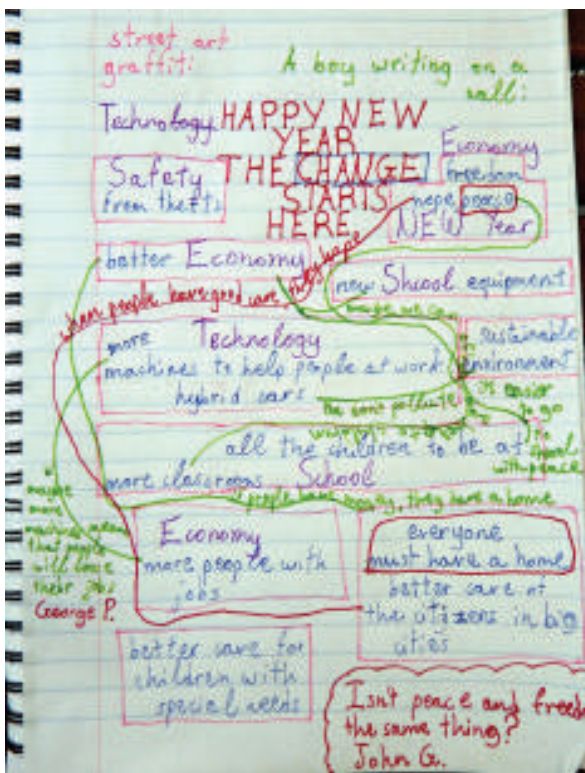 street art
graffiti
A boy writing on a
wall:
Technology
HAPPY NEW
YEAR
THE CHANGE
STARTS
HERE
Economy
freedom
Safety
from thefts
hope peace
NEW Year
better Economy
new Shcool equipment
when people have good care, they hope
more
Technology
machines to help people at work
hybrid cars
sustainable
environment
it's easier
to go
to
school
with peace
the cars pollute
all the children to be at
more classrooms, School
if people have money, they have a home
maybe
more
machines mean
that people
will lose
their jobs
George P.
Economy
more people with
jobs
everyone
must have a home
better care of
the citizens in big
cities
better care for
children with
special needs
Isn't peace and freed
the same thing?
John G.